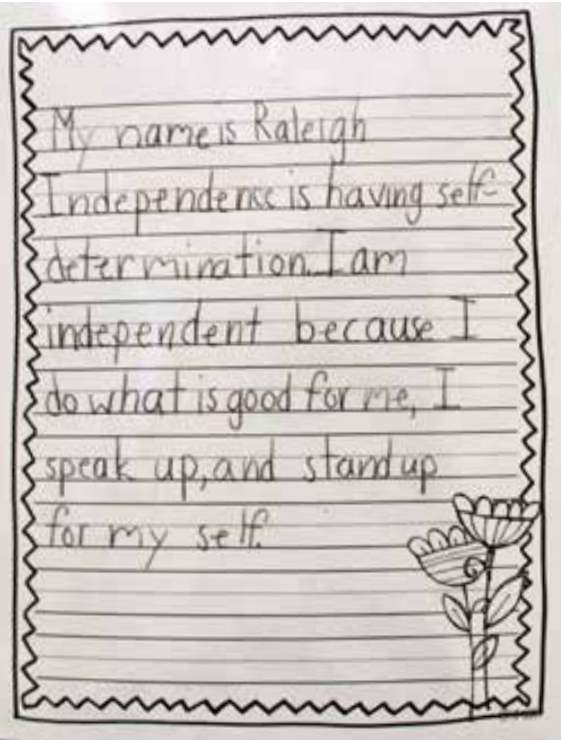 My name is Raleigh
Independence is having self-
determination. I am
independent because I
do what is good for me, I
speak up, and stand up
for my self.